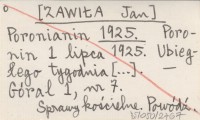 [ZAWIŁA Jan]
Poronianin 1925. Poro-
nin 1 lipca 1925. Ubieg-
łego tygodnia [...].
Góral 1, nr 7.
Sprawy kościelne. Powódź.